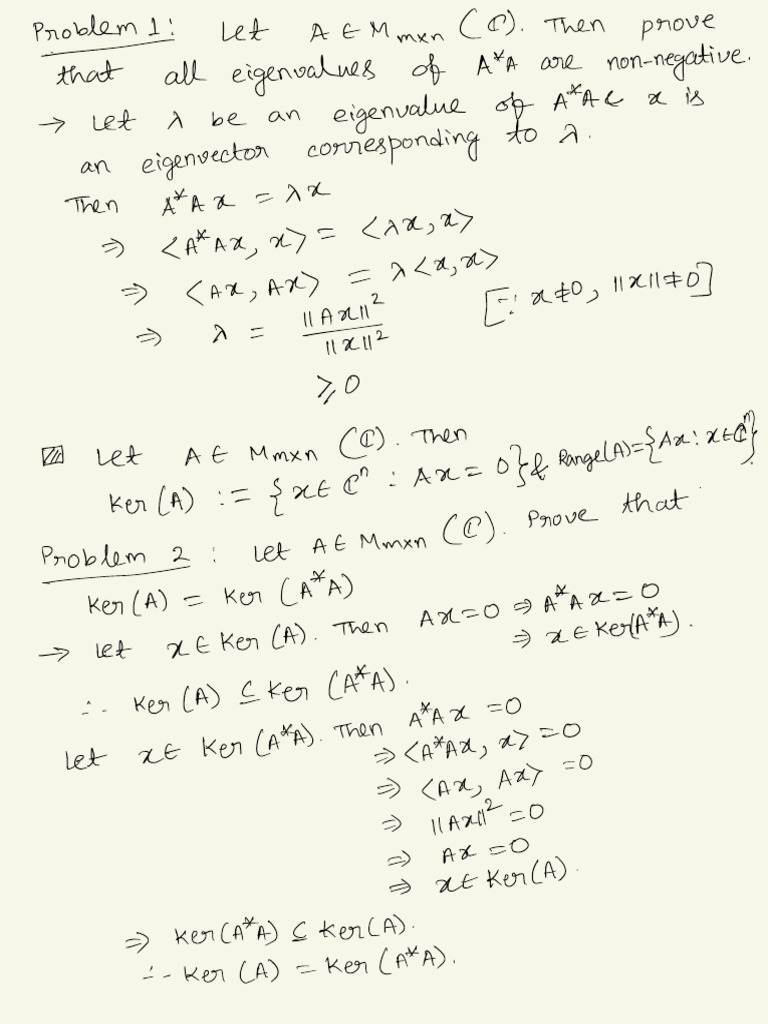 Problem 1: Let A ∈ M_{m×n} (ℂ). Then prove
that all eigenvalues of A*A are non-negative.
→ Let λ be an eigenvalue of A*A & x is
an eigenvector corresponding to λ.
Then A*Ax = λx
⇒ ⟨A*Ax, x⟩ = ⟨λx, x⟩
⇒ ⟨Ax, Ax⟩ = λ⟨x, x⟩
⇒ λ = ||Ax||² / ||x||² [∵ x ≠ 0, ||x|| ≠ 0]
≥ 0
▨ Let A ∈ M_{m×n} (ℂ). Then
Ker(A) := {x ∈ ℂⁿ : Ax = 0} & Range(A) = {Ax : x ∈ ℂⁿ}.
Problem 2 : Let A ∈ M_{m×n} (ℂ). Prove that
Ker(A) = Ker (A*A)
→ Let x ∈ Ker (A). Then Ax = 0 ⇒ A*Ax = 0
⇒ x ∈ Ker(A*A).
∴ Ker (A) ⊆ Ker (A*A).
Let x ∈ Ker (A*A). Then A*Ax = 0
⇒ ⟨A*Ax, x⟩ = 0
⇒ ⟨Ax, Ax⟩ = 0
⇒ ||Ax||² = 0
⇒ Ax = 0
⇒ x ∈ Ker(A)
⇒ Ker(A*A) ⊆ Ker(A).
∴ Ker (A) = Ker (A*A).